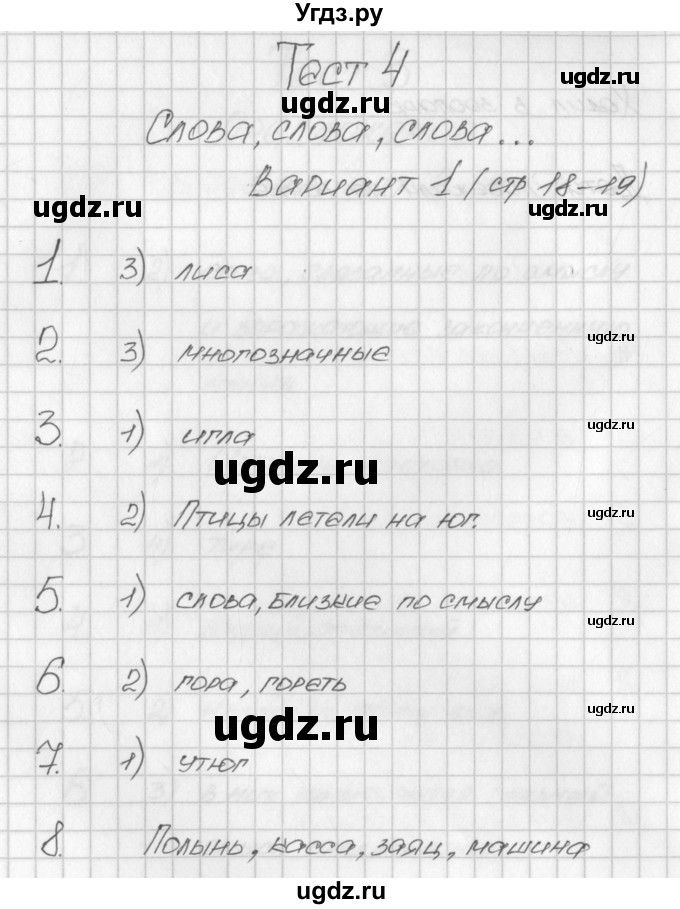 Угдз.ру
Тест 4
ugdz.ru
Слова, слова, слова...
Вариант 1 (стр 18-19)
ugdz.ru ugdz.ru
1. 3) лиса
2. 3) многозначные ugdz.ru
3. 1) игла ugdz.ru
ugdz.ru
4. 2) Птицы летели на юг. ugdz.ru
5. 1) слова, близкие по смыслу ugdz.ru
6. 2) гора, гореть ugdz.ru
ugdz.ru
7. 1) утюг ugdz.ru
8. Полынь, касса, заяц, машина
ugdz.ru